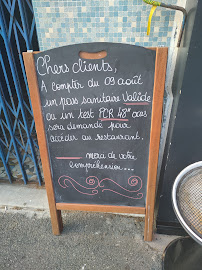 Chers clients,
A compter du 09 août
un pass sanitaire Valide
ou un test PCR 48H vous
sera demandé pour
accéder au restaurant.
merci de votre
compréhension...